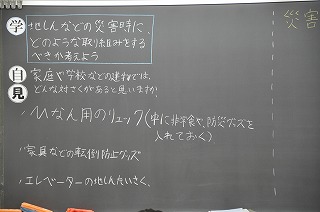 学 地しんなどの災害時に、
どのような取り組みをする
べきか考えよう
自 家庭や学校などの建物では、
見 どんな対さくがあると思いますか?
ひなん用のリュック(中に非常食や、防災グッズを
入れておく)
家具などの転倒防止グッズ
エレベーターの地しんたいさく、
災害